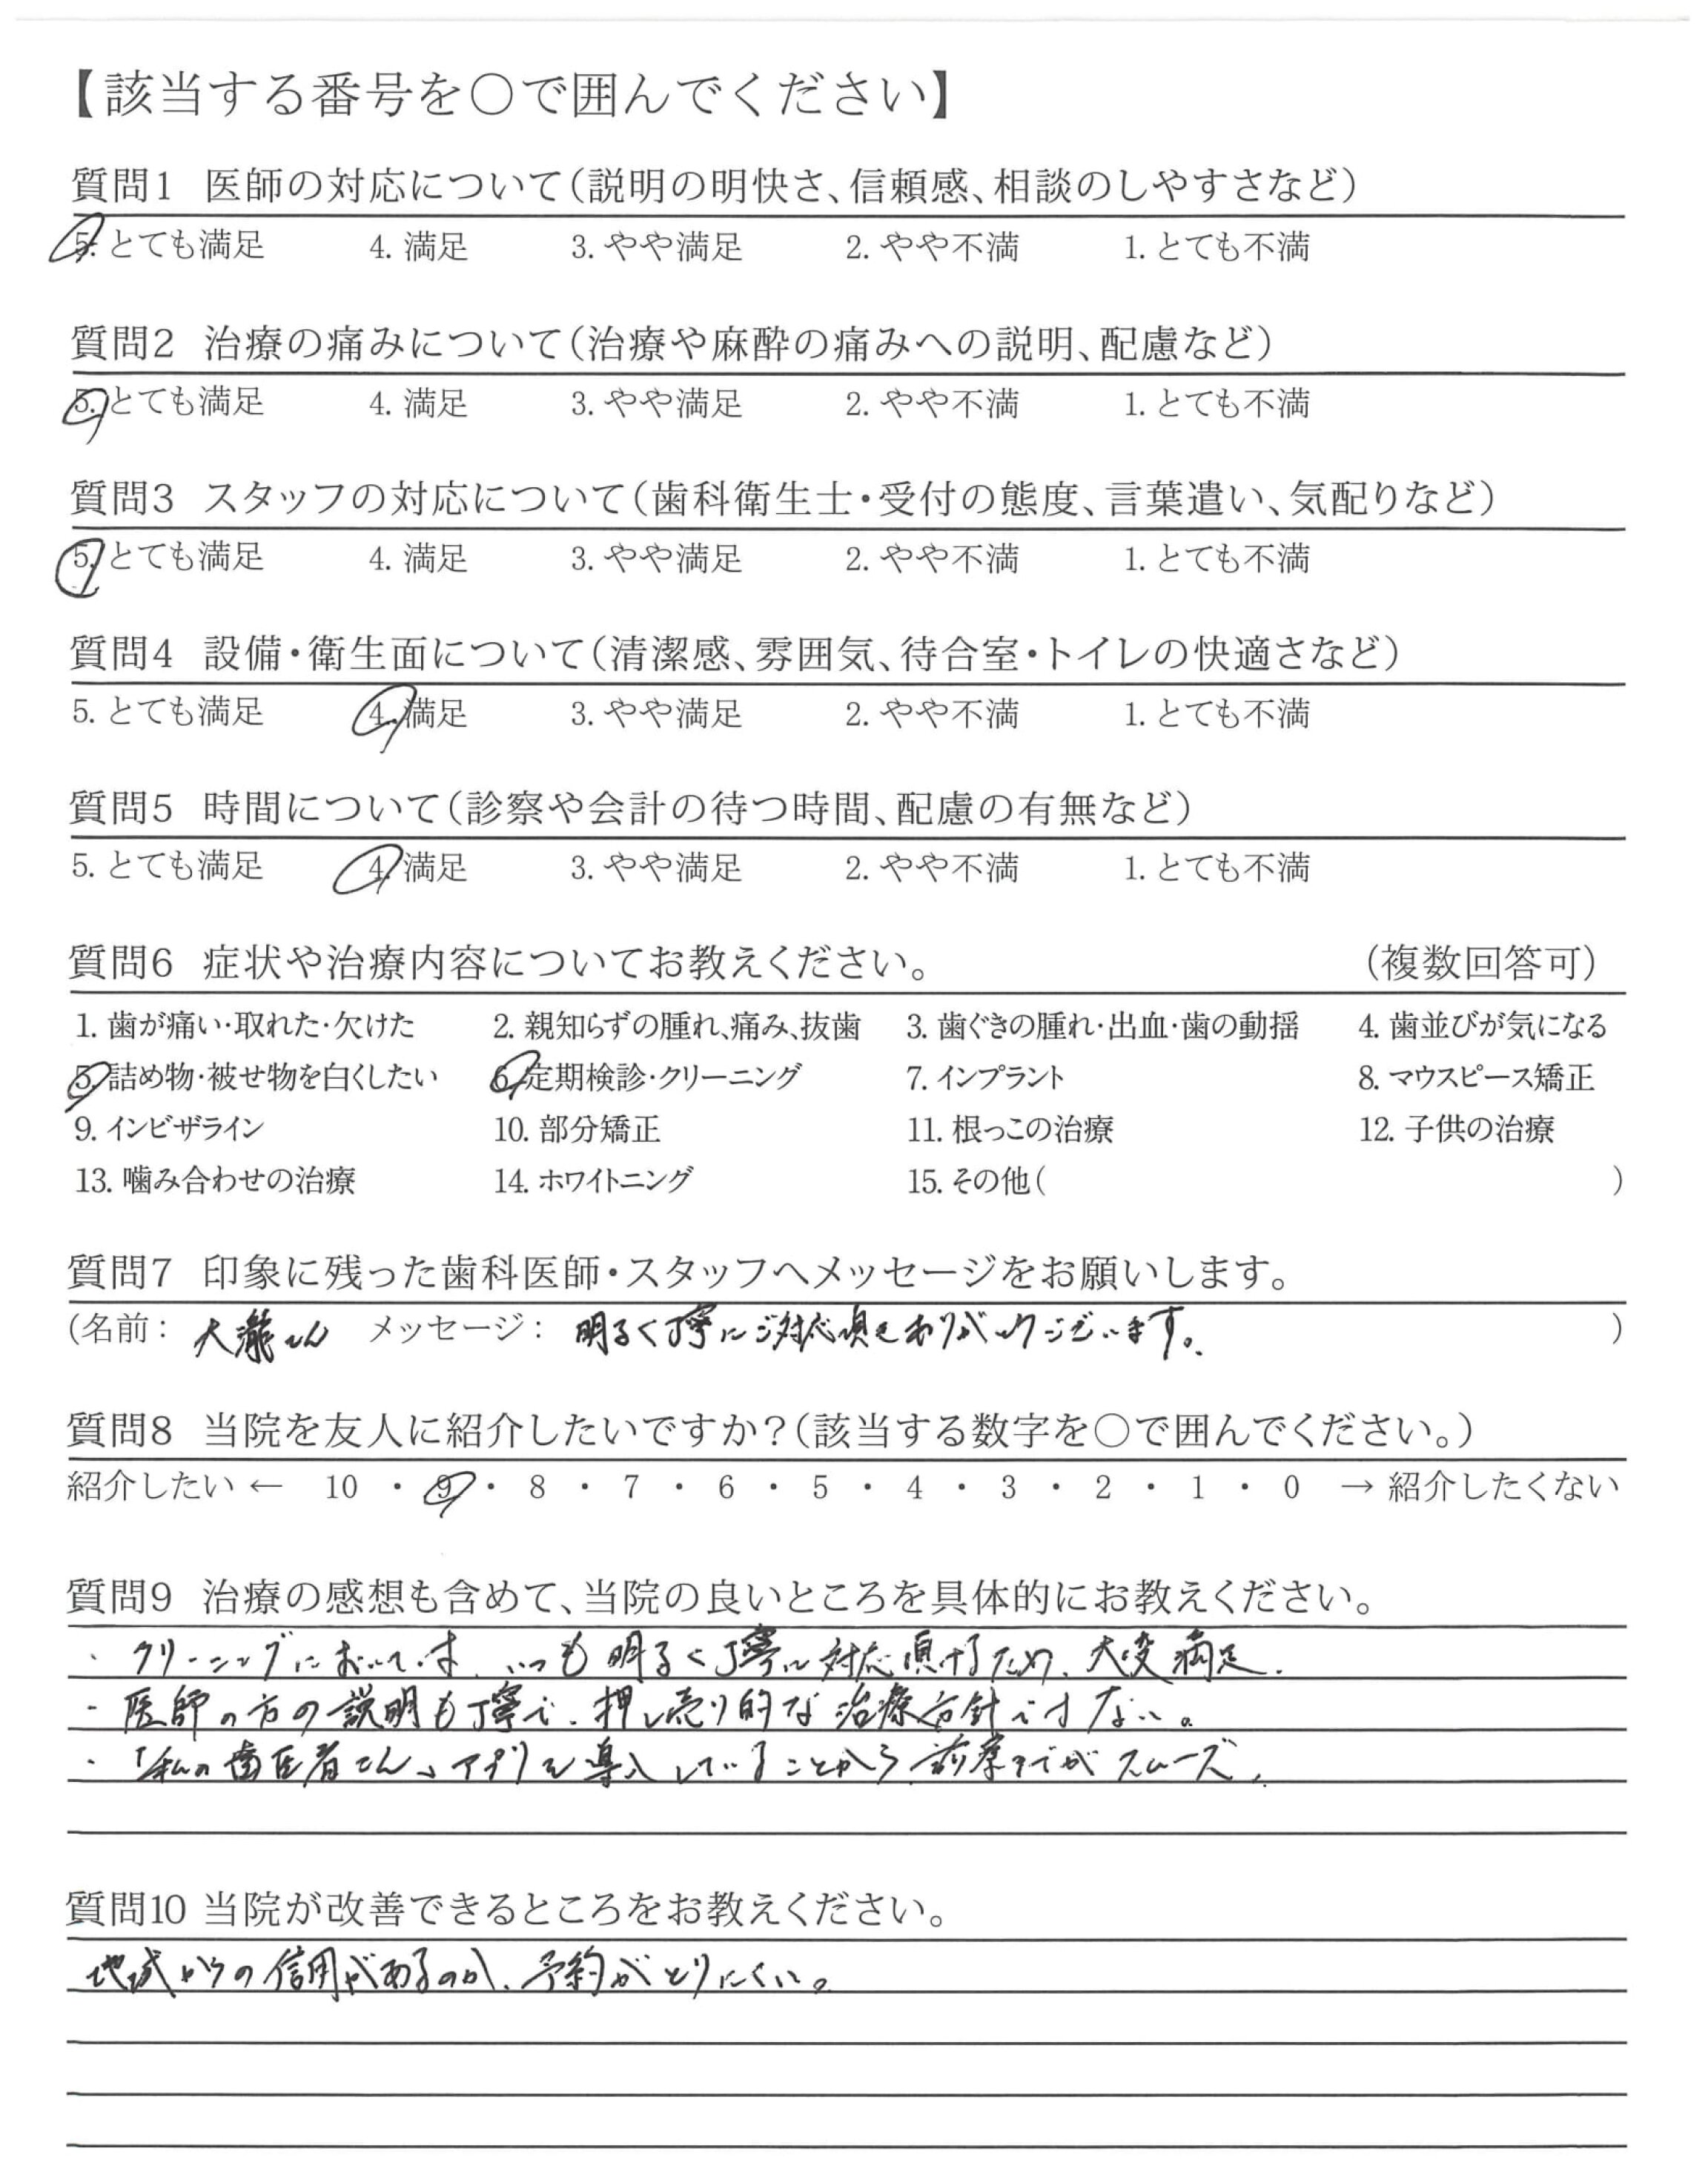 【該当する番号を○で囲んでください】
質問1 医師の対応について(説明の明快さ、信頼感、相談のしやすさなど)
5. とても満足 4. 満足 3. やや満足 2. やや不満 1. とても不満
質問2 治療の痛みについて(治療や麻酔の痛みへの説明、配慮など)
5. とても満足 4. 満足 3. やや満足 2. やや不満 1. とても不満
質問3 スタッフの対応について(歯科衛生士・受付の態度、言葉遣い、気配りなど)
5. とても満足 4. 満足 3. やや満足 2. やや不満 1. とても不満
質問4 設備・衛生面について(清潔感、雰囲気、待合室・トイレの快適さなど)
5. とても満足 4. 満足 3. やや満足 2. やや不満 1. とても不満
質問5 時間について(診察や会計の待つ時間、配慮の有無など)
5. とても満足 4. 満足 3. やや満足 2. やや不満 1. とても不満
質問6 症状や治療内容についてお教えください。 (複数回答可)
1. 歯が痛い・取れた・欠けた 2. 親知らずの腫れ、痛み、抜歯 3. 歯ぐきの腫れ・出血・歯の動揺 4. 歯並びが気になる
5. 詰め物・被せ物を白くしたい 6. 定期検診・クリーニング 7. インプラント 8. マウスピース矯正
9. インビザライン 10. 部分矯正 11. 根っこの治療 12. 子供の治療
13. 噛み合わせの治療 14. ホワイトニング 15. その他( )
質問7 印象に残った歯科医師・スタッフへメッセージをお願いします。
(名前: 大瀧さん メッセージ: 明るく丁寧にご対応頂きありがとうございます。 )
質問8 当院を友人に紹介したいですか?(該当する数字を○で囲んでください。)
紹介したい ← 10 ・ 9 ・ 8 ・ 7 ・ 6 ・ 5 ・ 4 ・ 3 ・ 2 ・ 1 ・ 0 → 紹介したくない
質問9 治療の感想も含めて、当院の良いところを具体的にお教えください。
・ クリーニングにおいては、いつも明るく丁寧に対応頂けるため、大変満足。
・ 医師の方の説明も丁寧で、押し売り的な治療方針ではない。
・ 「私の歯医者さん」アプリを導入していることから診療までがスムーズ。
質問10 当院が改善できるところをお教えください。
地域からの信用があるのか、予約がとりにくい。